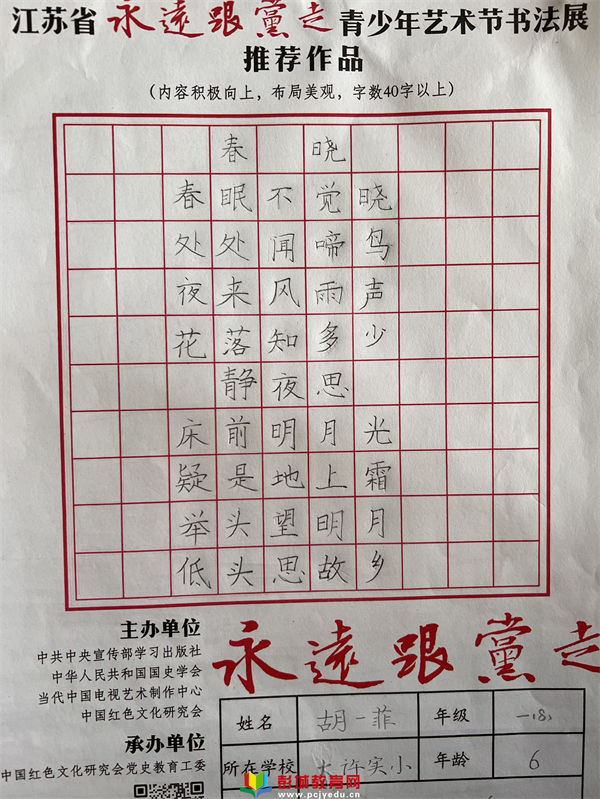 江苏省永遠跟黨走青少年艺术节书法展
推荐作品
（内容积极向上，布局美观，字数40字以上）
春晓
春眠不觉晓
处处闻啼鸟
夜来风雨声
花落知多少
静夜思
床前明月光
疑是地上霜
举头望明月
低头思故乡
主办单位
中共中央宣传部学习出版社
中华人民共和国国史学会
当代中国电视艺术制作中心
中国红色文化研究会
承办单位
中国红色文化研究会党史教育工委
永遠跟黨走
姓名 胡一菲 年级 一.8.
所在学校 大许实小 年龄 6
彭城教育网
www.pcjyedu.cn